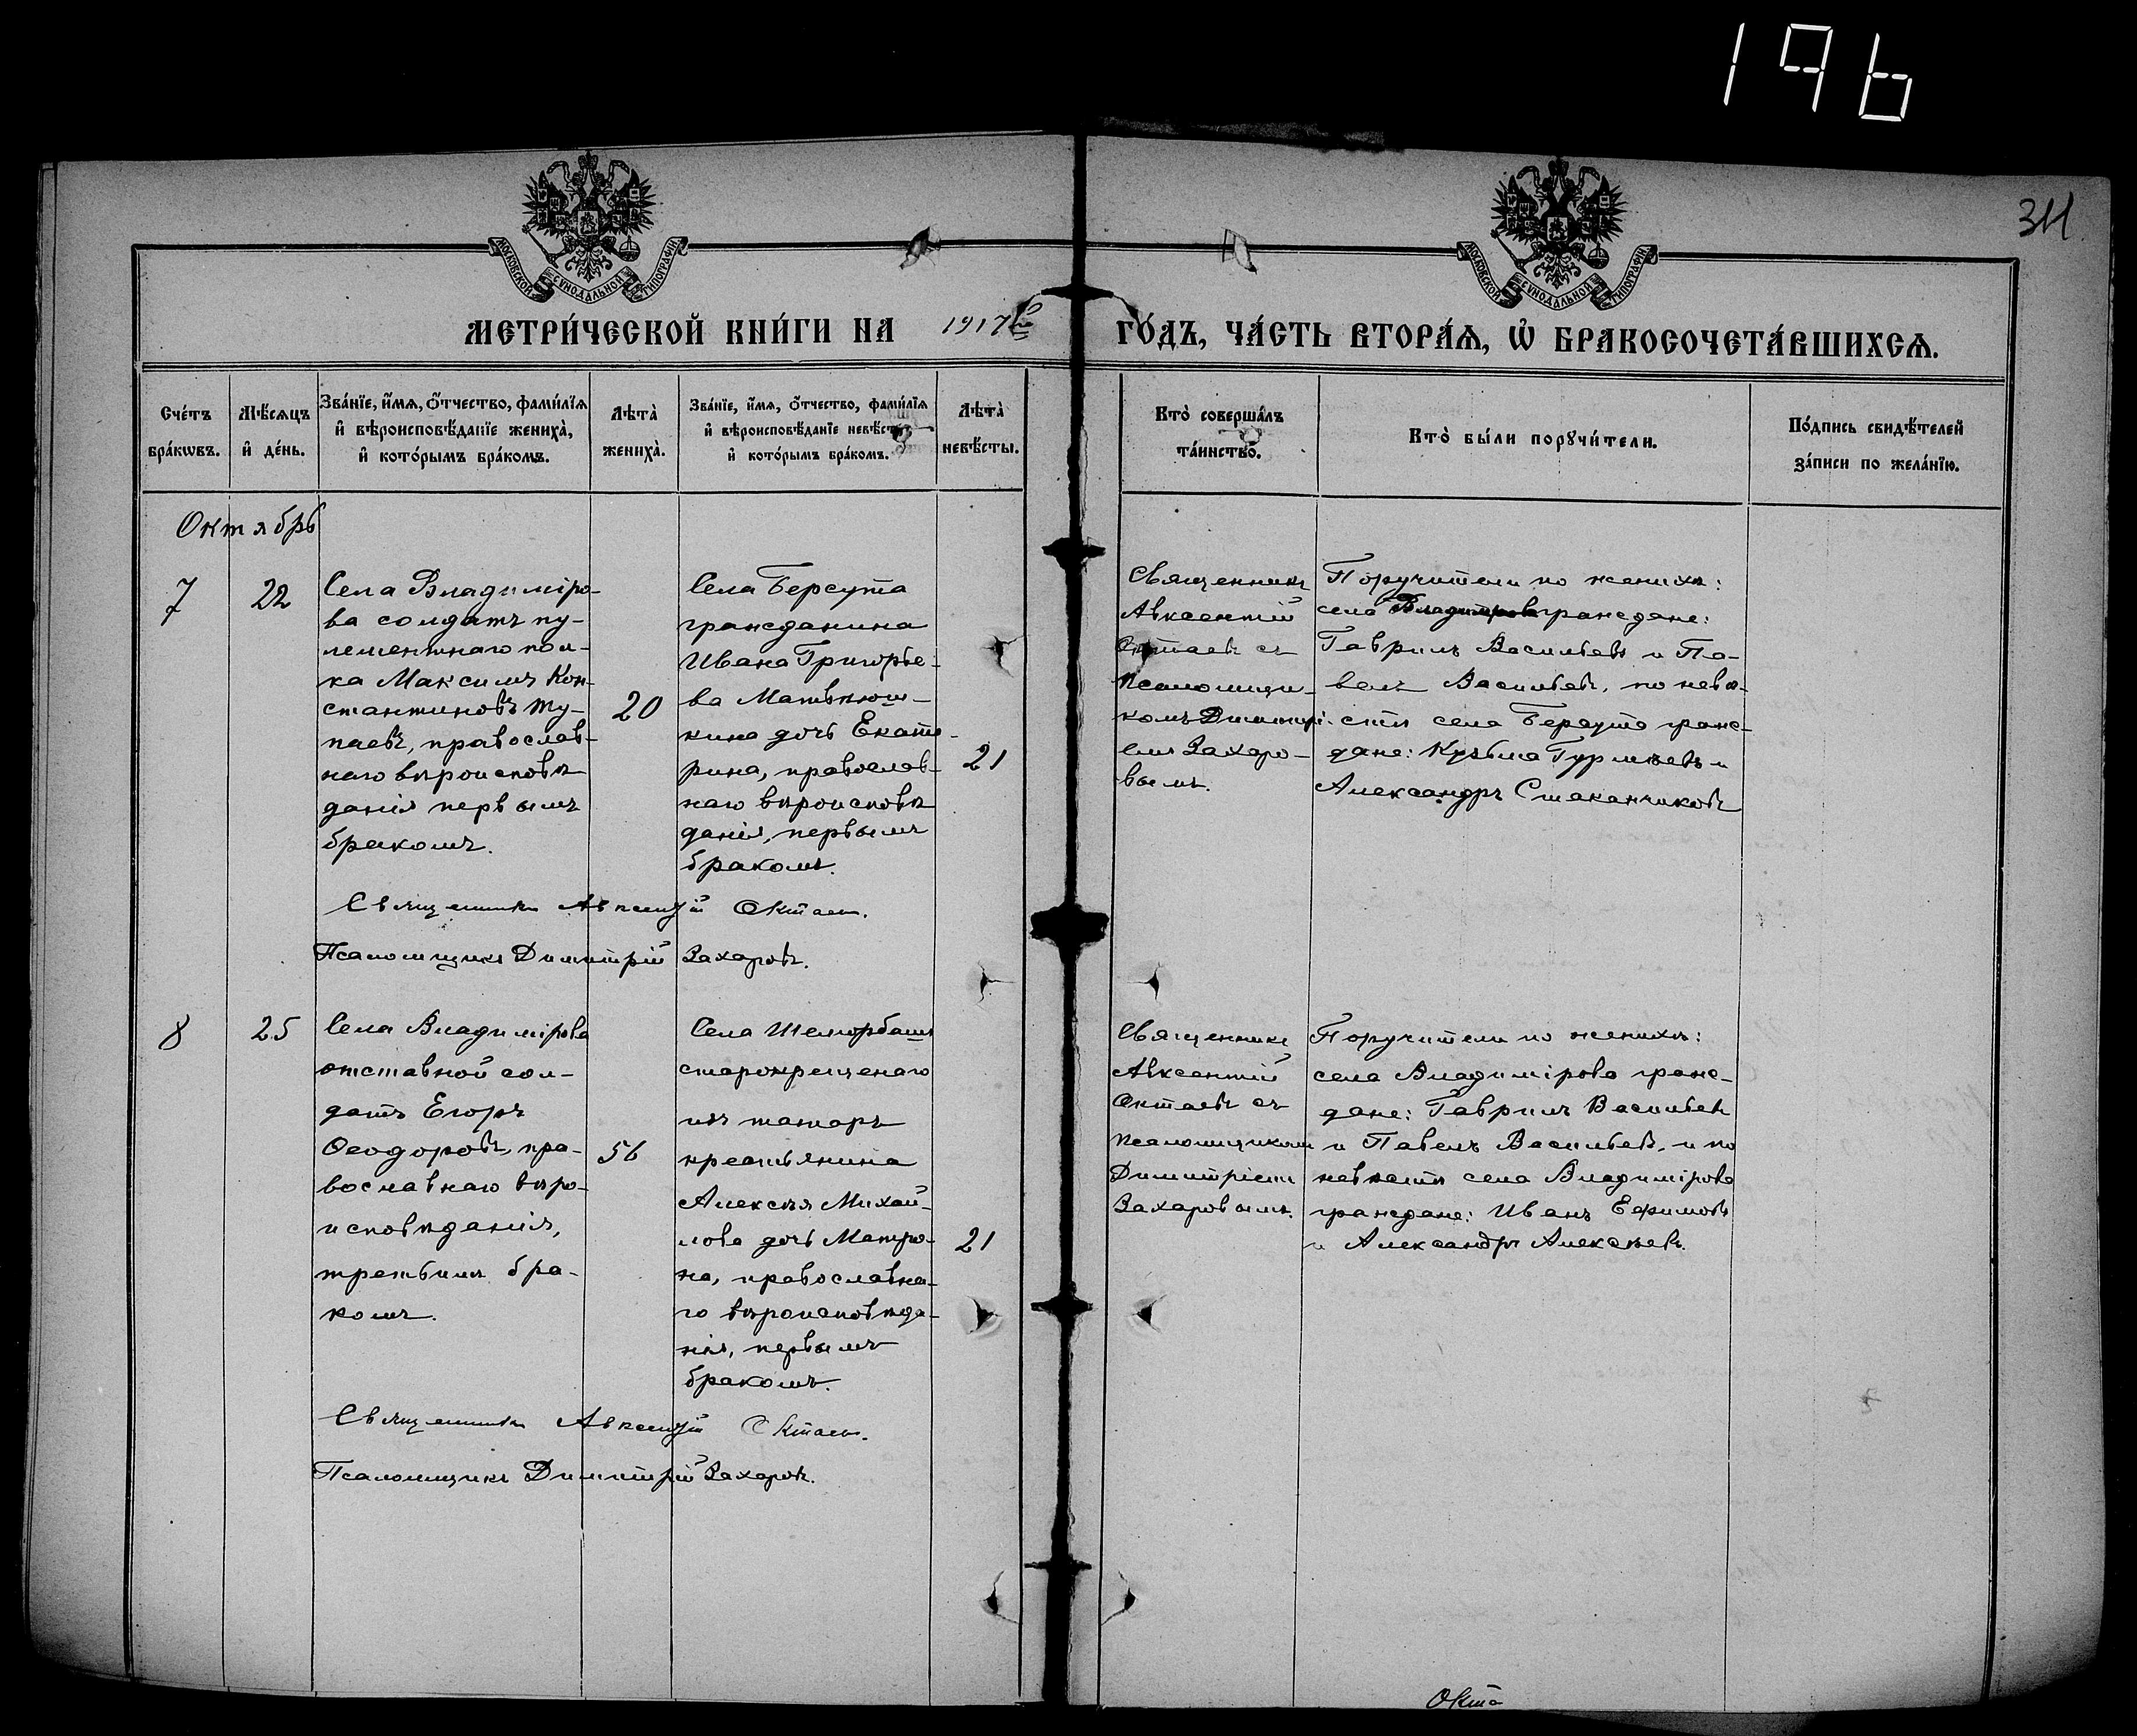 196
311
МОСКОВСКОЙ СѴНОДАЛЬНОЙ ТИПОГРАФІИ
МОСКОВСКОЙ СѴНОДАЛЬНОЙ ТИПОГРАФІИ
МЕТРИ́ЧЕСКОЙ КНИ́ГИ НА 1917й ГО́ДЪ, ЧА́СТЬ ВТОРА́Ѧ, Ѡ҆ БРАКОСОЧЕТА́ВШИХСѦ.
Сче́тъ
бра́кѡвъ.
Мѣ́сяцъ
и҆ де́нь.
Зва́нїе, и҆́мя, ѻ҆́тчество, фами́лїя
и҆ вѣроисповѣ́данїе жениха̀,
и҆ кото́рымъ бра́комъ.
Лѣта̀
жениха̀.
Зва́нїе, и҆́мя, ѻ҆́тчество, фами́лїя
и҆ вѣроисповѣ́данїе невѣ́сты,
и҆ кото́рымъ бра́комъ.
Лѣта̀
невѣ́сты.
Кто̀ соверша́лъ
та́инство.
Кто̀ бы́ли порꙋчи́тели.
По́дпись свидѣ́телей
за́писи по жела́нїю.
Октябрь
7
22
Села Владиміро-
ва солдатъ пу-
леметнаго пол-
ка Максимъ Кон-
стантиновъ Ту-
паевъ, православ-
наго вѣроисповѣ
данія первымъ
бракомъ.
20
Села Берсута
гражданина
Ивана Григорье-
ва
кина дочь Екате-
рина, православ-
наго вѣроисповѣ
данія, первымъ
бракомъ.
21
Священникъ
Авксентій
Октаевъ съ
псаломщи-
комъ Димитрі-
емъ Захаро-
вымъ.
Поручители по женихѣ:
села Владимірова граждане:
Гавріилъ Васильевъ и Па-
велъ Васильевъ, по невѣ-
стѣ села Берсута граж-
дане: Кузьма Гурьевъ и
Александръ Стаканчиковъ
Священникъ Авксентій Октаевъ.
Псаломщикъ Димитрій Захаровъ.
8
25
Села Владимірова
отставной сол-
датъ Егоръ
Ѳеодоровъ, пра-
вославнаго вѣро-
исповѣданія,
третьимъ бра-
комъ.
56
Села Шеморбаши
старокрещенаго
изъ татаръ
крестьянина
Алексѣя Михай-
лова дочь Матро-
на, православна-
го вѣроисповѣда-
нія, первымъ
бракомъ.
21
Священникъ
Авксентій
Октаевъ съ
псаломщикомъ
Димитріемъ
Захаровымъ.
Поручители по женихѣ:
села Владимірова граж-
дане: Гавріилъ Васильевъ
и Павелъ Васильевъ, и по
невѣстѣ села Владимірова
граждане: Иванъ Ефимовъ
и Александръ Алексѣевъ.
Священникъ Авксентій Октаевъ.
Псаломщикъ Димитрій Захаровъ.
Окта